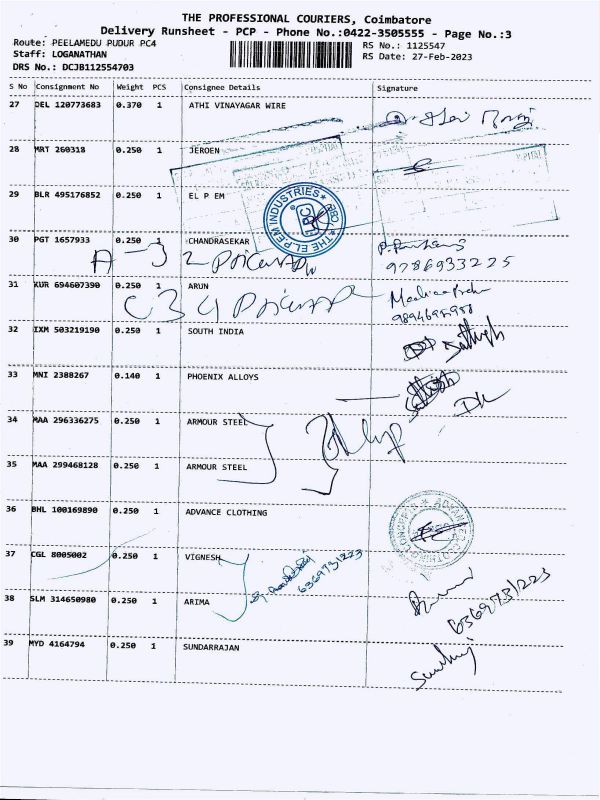 THE PROFESSIONAL COURIERS, Coimbatore
Delivery Runsheet - PCP - Phone No.:0422-3505555 - Page No.:3
Route: PEELAMEDU PUDUR PC4
RS No.: 1125547
Staff: LOGANATHAN
RS Date: 27-Feb-2023
DRS No.: DCJB112554703
S No Consignment No Weight PCS Consignee Details Signature
27 DEL 120773683 0.370 1 ATHI VINAYAGAR WIRE
28 MRT 260318 0.250 1 JEROEN
29 BLR 495176852 0.250 1 EL P EM
THE ELPEM INDUSTRIES CBE
30 PGT 1657933 0.250 1 CHANDRASEKAR
9786933225
31 KUR 694607390 0.250 1 ARUN
32 IXM 503219190 0.250 1 SOUTH INDIA
Sathish
33 MNI 2388267 0.140 1 PHOENIX ALLOYS
34 MAA 296336275 0.250 1 ARMOUR STEEL
35 MAA 299468128 0.250 1 ARMOUR STEEL
36 BHL 100169890 0.250 1 ADVANCE CLOTHING
37 CGL 8005002 0.250 1 VIGNESH
6369731223
38 SLM 314650980 0.250 1 ARIMA
6369731223
39 MYD 4164794 0.250 1 SUNDARRAJAN